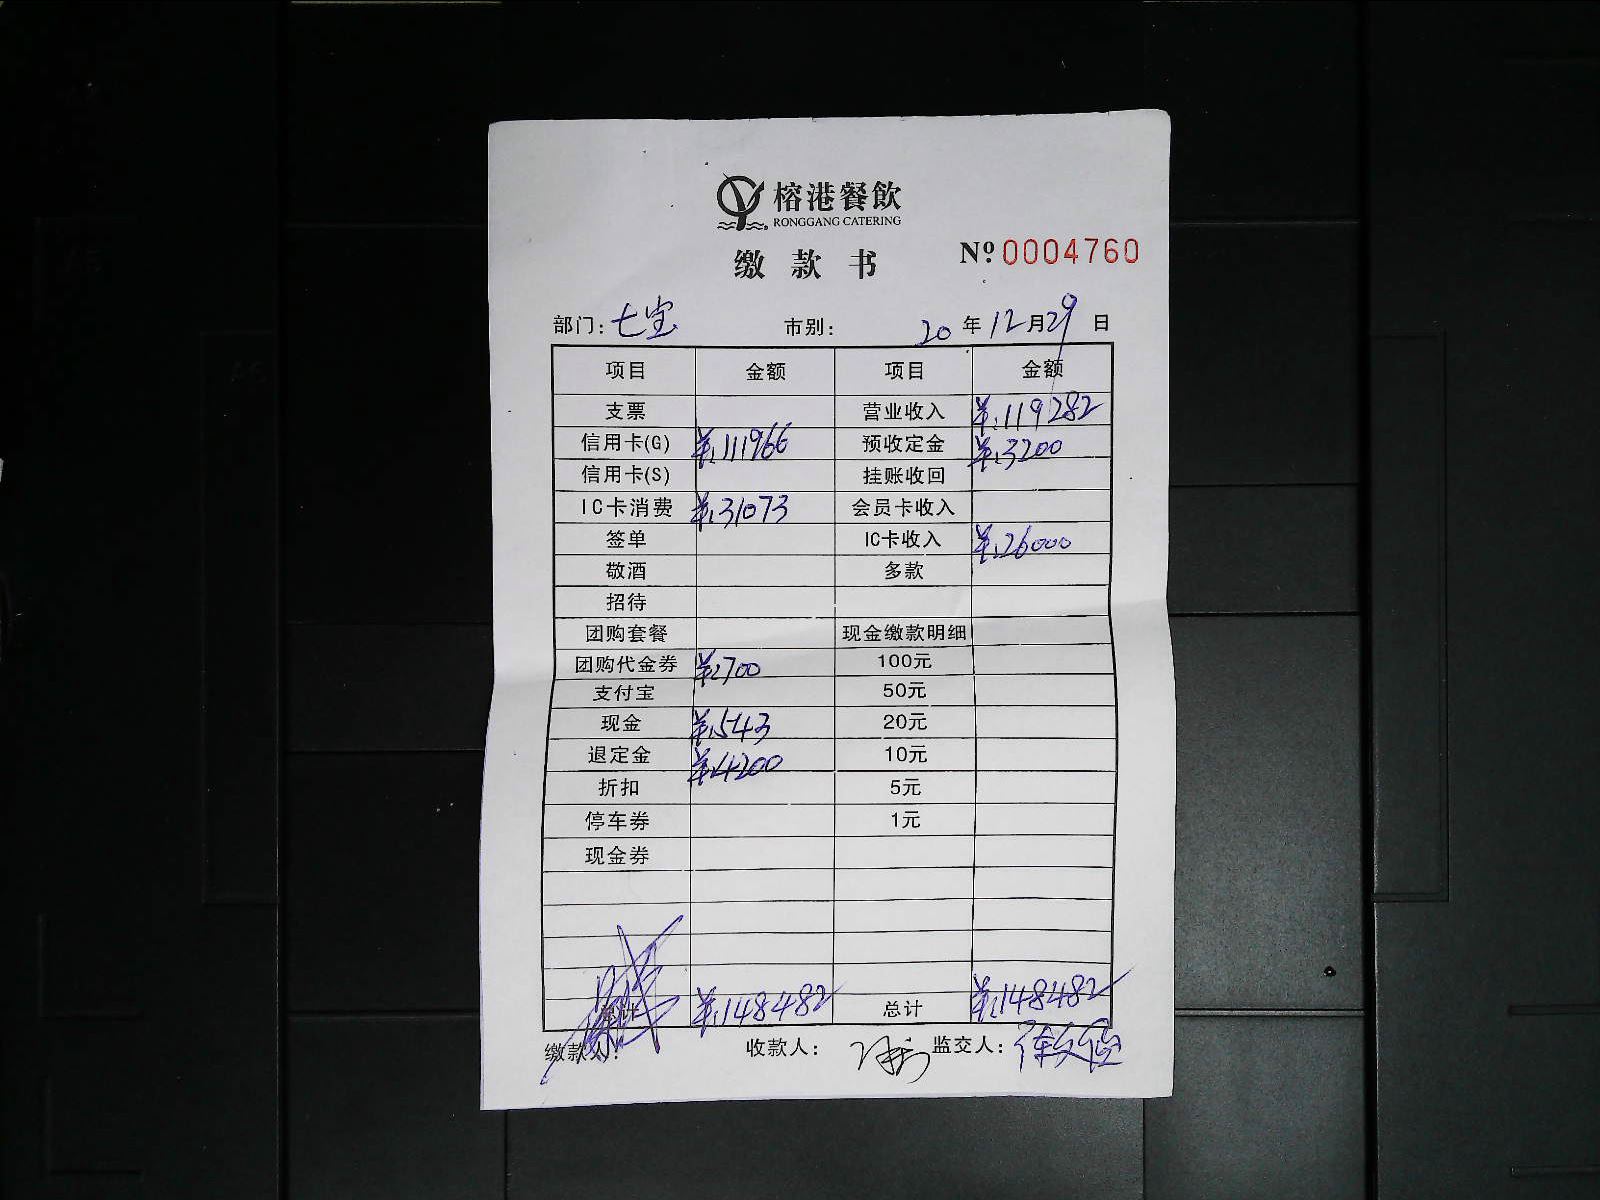 榕港餐飲
RONGGANG CATERING
缴 款 书
Nº 0004760
部门: 七宝 市别: 20 年 12 月 29 日
项目 金额 项目 金额
支票 营业收入 ¥:119282
信用卡(G) ¥:111966 预收定金 ¥:3200
信用卡(S) 挂账收回
IC卡消费 ¥:31073 会员卡收入
签单 IC卡收入 ¥:26000
敬酒 多款
招待
团购套餐 现金缴款明细
团购代金券 ¥:700 100元
支付宝 50元
现金 ¥:543 20元
退定金 ¥:4200 10元
折扣 5元
停车券 1元
现金券
总计 ¥:148482 总计 ¥:148482
缴款人: 收款人: 监交人: